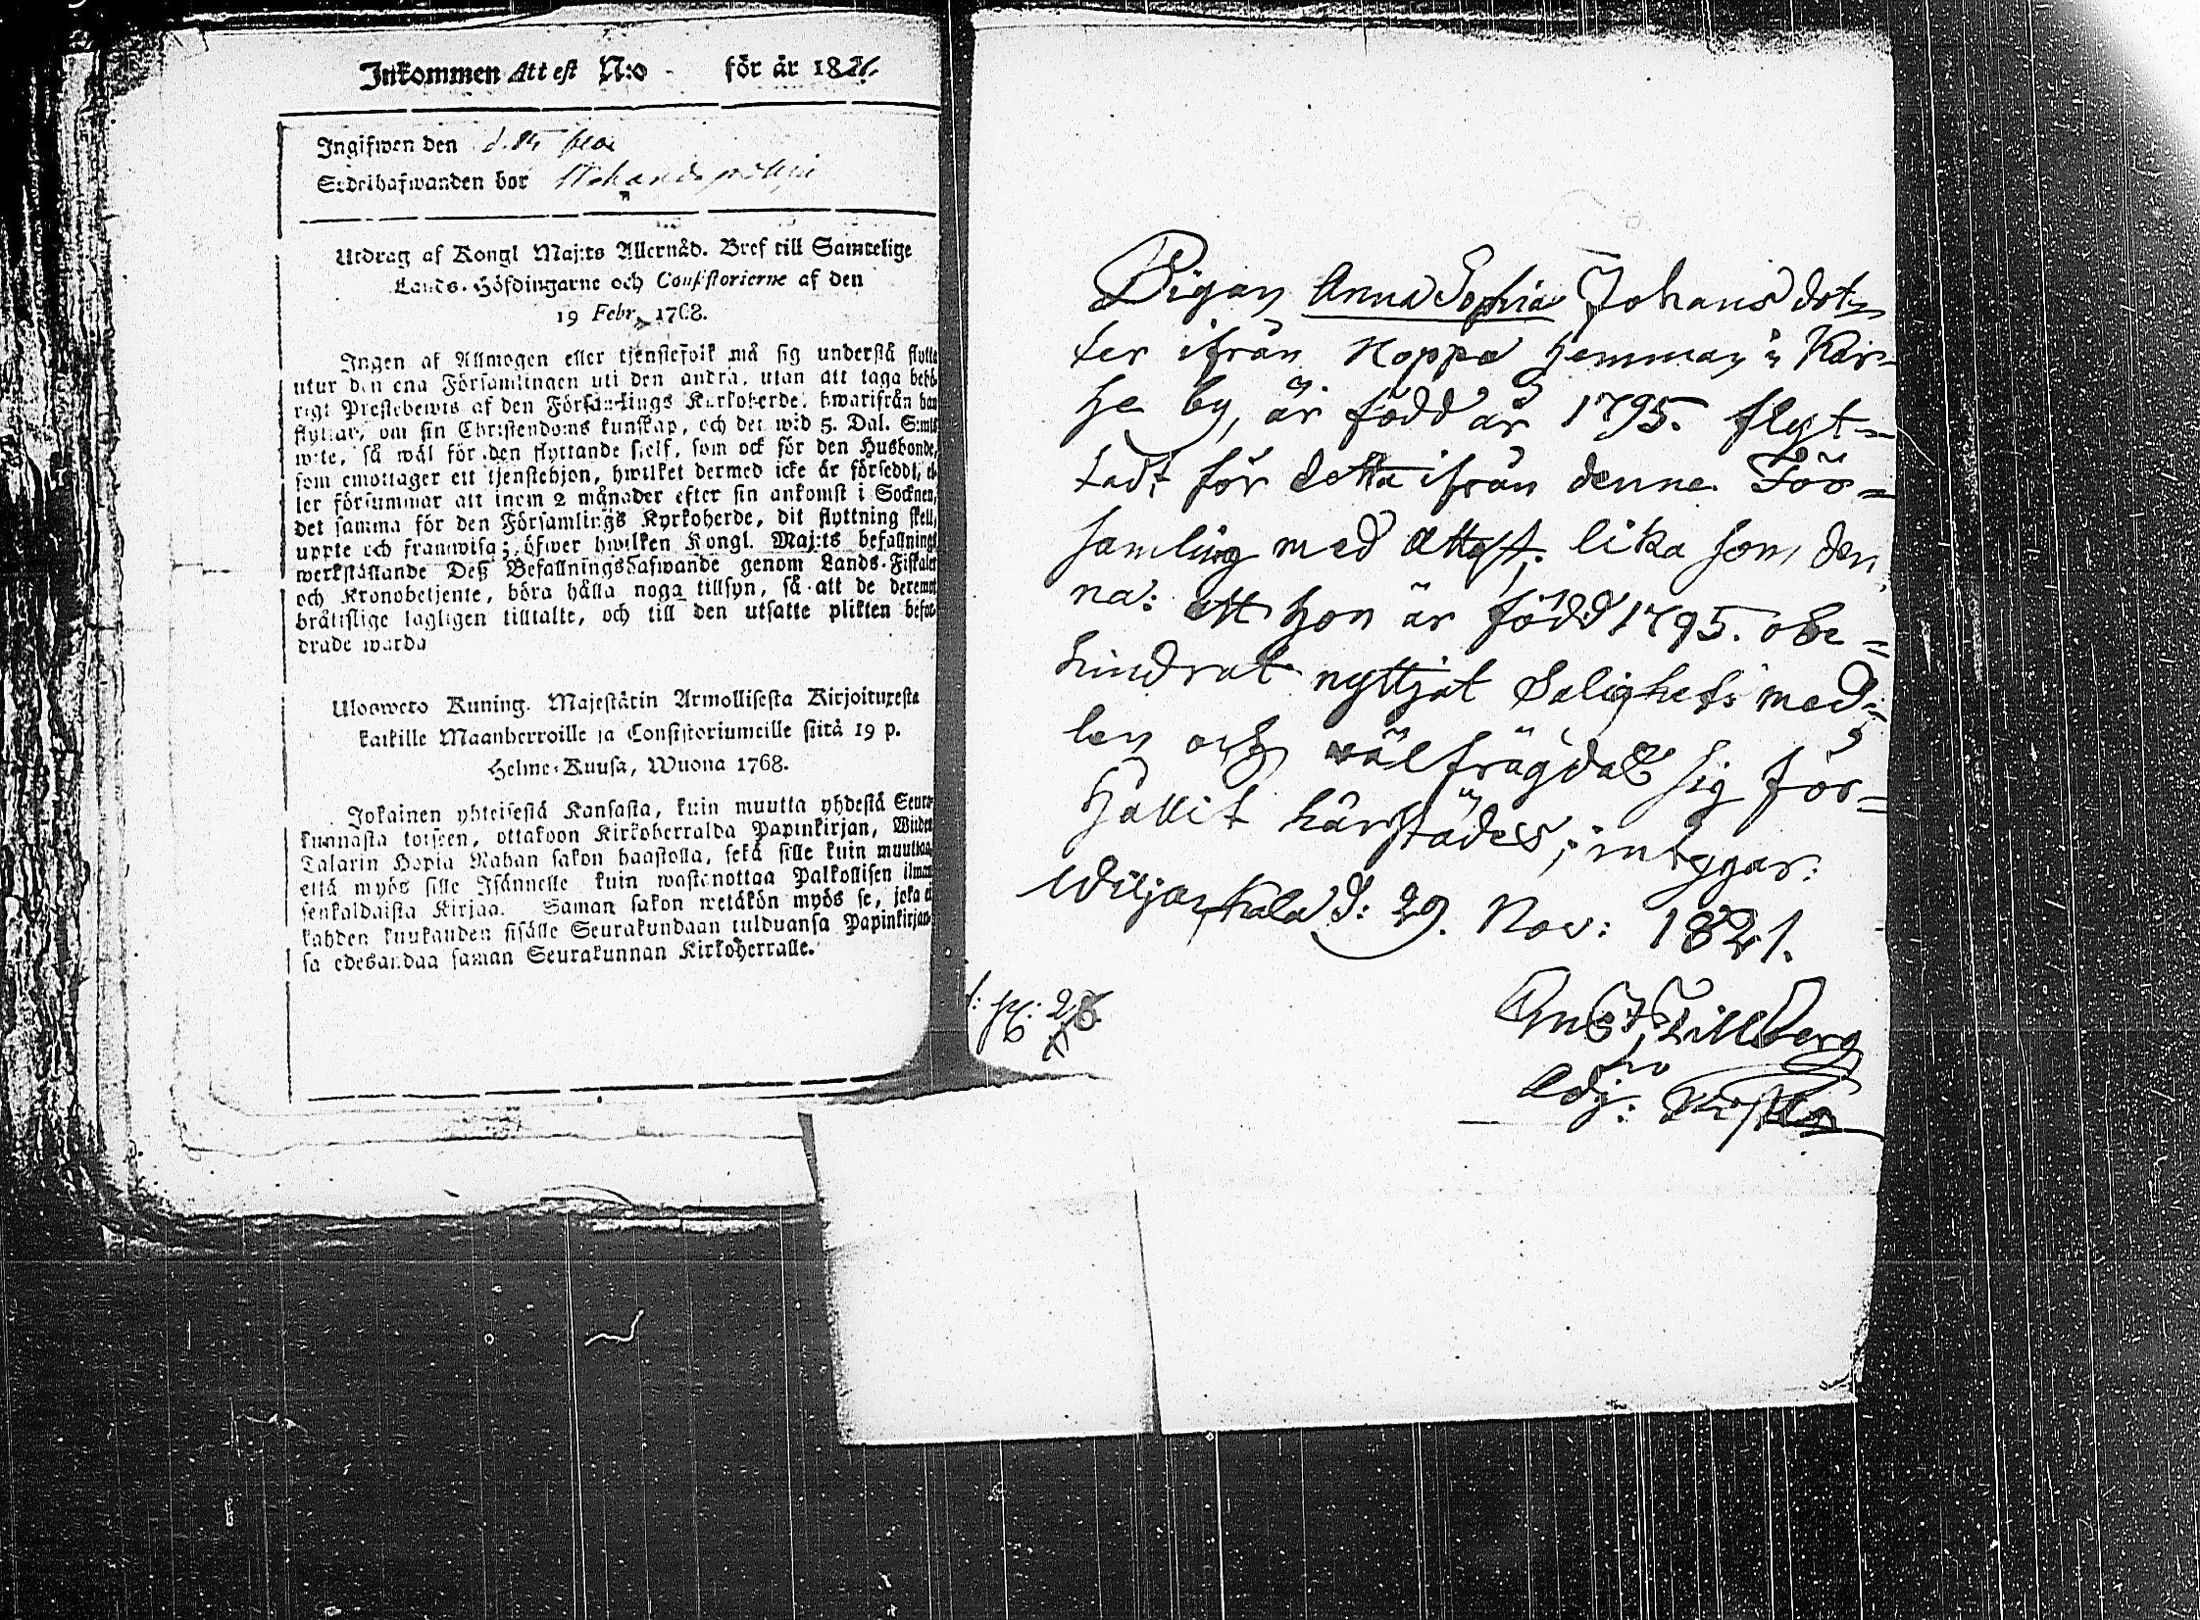 Inkommen Attest N:o - för år 1821.
Ingifwen den d.
Sedelhafwanden bor
Utdrag af Kongl Maj:ts Allernåd. Bref till Samtelige
Lands-Höfdingarne och Consistorierne af den
19 Febr. 1768.
Ingen af Allmogen eller tjenstefolk må sig understå flytta
utur den ena Församlingen uti den andra, utan att taga behö-
rigt Prestebewis af den Församlings Kyrkoherde, hwarifrån han
flyttar, om sin Christendoms kunskap, och det wid 5. Dal. S:mts
wite, så wäl för den flyttande sielf, som ock för den Husbonde,
som emottager ett tjenstehjon, hwilket dermed icke är försedt, el-
ler försummar att inom 2 månader efter sin ankomst i Socknen,
det samma för den Församlings Kyrkoherde, dit flyttning skett,
uppte och framwisa; öfwer hwilken Kongl. Maj:ts befallnings
werkställande Deß Befallningshafwande genom Lands-Fiskaler
och Kronobetjente, böra hålla noga tillsyn, så att de deremot
bråttslige lagligen tilltalte, och till den utsatte plikten befor-
drade warda
Ulosweto Kuning. Majestätin Armollisesta Kirjoituxesta
kaikille Maanherroille ja Consistoriumeille siitä 19 p.
Helme-Kuusa, Wuona 1768.
Jokainen yhteisestä Kansasta, kuin muutta yhdestä Seura-
kunnasta toiseen, ottakoon Kirkoherralda Papinkirjan, Wiiden
Talarin Hopia Rahan sakon haastolla, sekä sille kuin muuttaa
että myös sille Isännelle kuin wastanottaa Palkollisen ilman
senkaldaista Kirjaa. Saman sakon wetäkön myös se, joka ei
kahden kuukauden sisälle Seurakundaan tulduansa Papinkirjan-
sa edesandaa saman Seurakunnan Kirkoherralle.
Pigan Anna Sophia Johans dot-
ter ifrån Hoppa Hemman i Kär-
he by, är född år 1795. flyt-
tadt för detta ifrån denne För=
samling med attest, lika som den
na: att hon är född 1795. obe=
hindrat nyttjat Salighets med=
len och wälfrägdat sig för=
hållit härstädes; intygar:
Wiljakkala d: 29. Nov: 1821.
Gust. Lillberg
Adj: